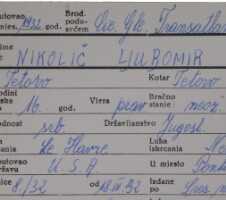 utovao
mjes. 1932 god.
Brod.
poduzećem Cie. Gle. Transatlan
ime NIKOLIĆ LJUBOMIR
Tetovo Kotar Tetovo
odini
16. god. Vjera prav Bračno
stanje:
odnost srb. Državljanstvo Jugosl.
Le Havre Luka
iskrcanja
utovao
U.S.A U mjesto
8/32 od 18.III.32 Izdane
po